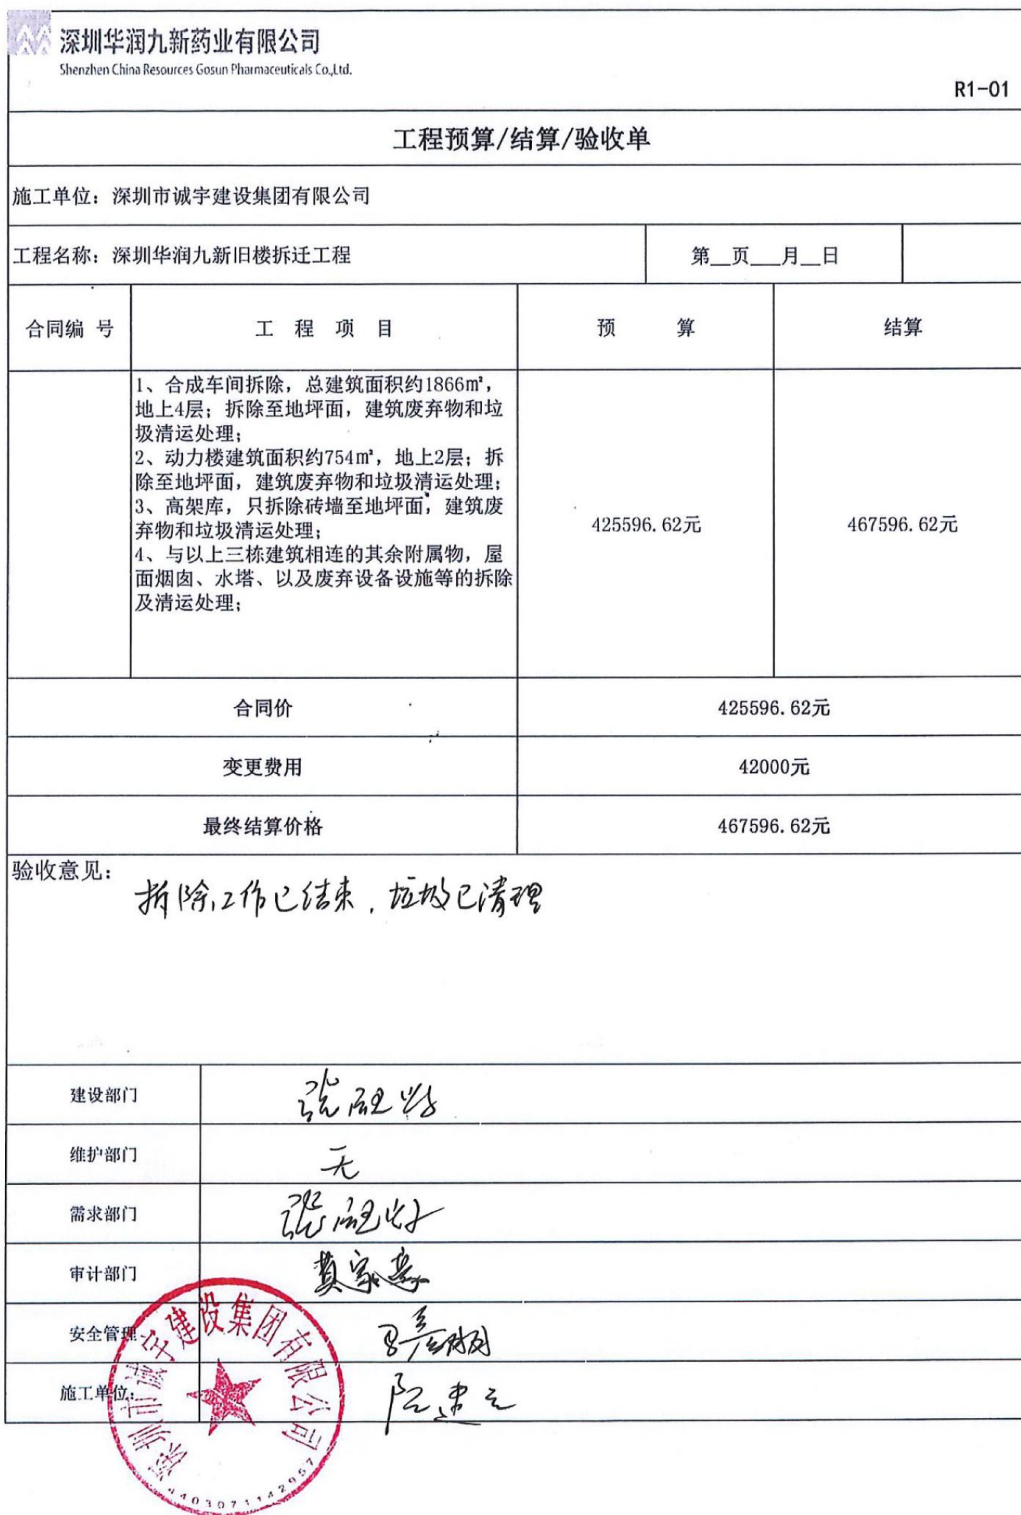 深圳华润九新药业有限公司
Shenzhen China Resources Gosun Pharmaceuticals Co.,Ltd.
R1-01
工程预算/结算/验收单
施工单位：深圳市诚宇建设集团有限公司
工程名称：深圳华润九新旧楼拆迁工程 第__页___月__日
合同编 号 工 程 项 目 预 算 结算
1、合成车间拆除，总建筑面积约1866㎡，
地上4层；拆除至地坪面，建筑废弃物和垃
圾清运处理；
2、动力楼建筑面积约754㎡，地上2层；拆
除至地坪面，建筑废弃物和垃圾清运处理；
3、高架库，只拆除砖墙至地坪面，建筑废
弃物和垃圾清运处理；
4、与以上三栋建筑相连的其余附属物，屋
面烟囱、水塔、以及废弃设备设施等的拆除
及清运处理；
425596.62元 467596.62元
合同价 425596.62元
变更费用 42000元
最终结算价格 467596.62元
验收意见：
拆除工作已结束，垃圾已清理
建设部门
维护部门 无
需求部门
审计部门
安全管理
施工单位：
深圳市诚宇建设集团有限公司
4403071142957